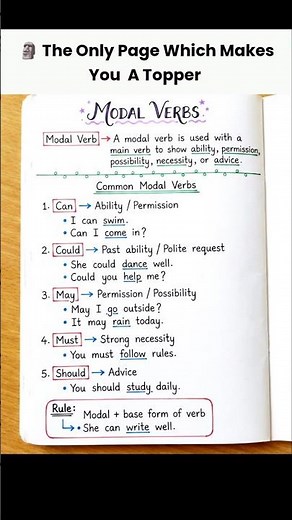 🗿 The Only Page Which Makes
You A Topper
MODAL VERBS
Modal Verb → A modal verb is used with a
main verb to show ability, permission,
possibility, necessity, or advice.
Common Modal Verbs
1. Can → Ability / Permission
• I can swim.
• Can I come in?
2. Could → Past ability / Polite request
• She could dance well.
• Could you help me?
3. May → Permission / Possibility
• May I go outside?
• It may rain today.
4. Must → Strong necessity
• You must follow rules.
5. Should → Advice
• You should study daily.
Rule: Modal + base form of verb
↳ • She can write well.